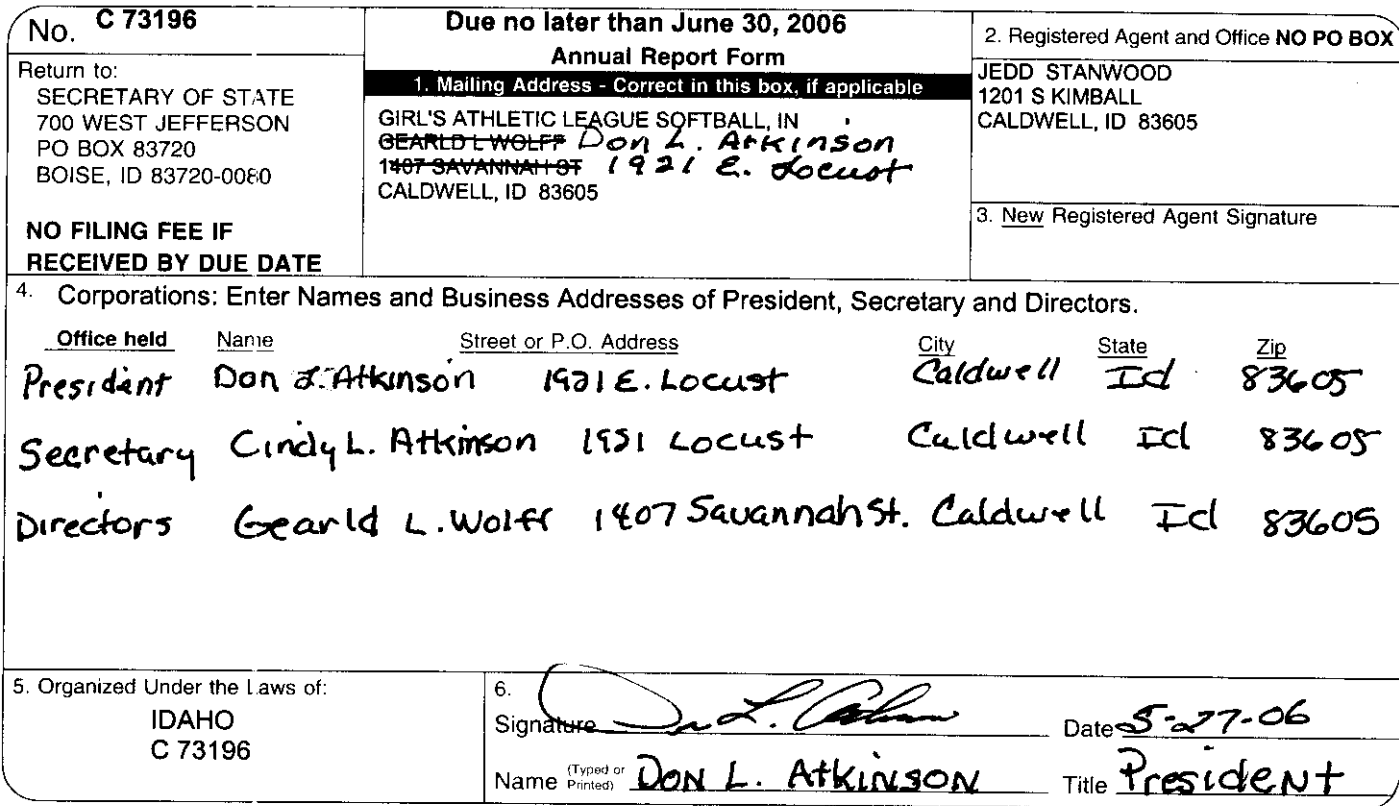 No. C 73196
Return to:
SECRETARY OF STATE
700 WEST JEFFERSON
PO BOX 83720
BOISE, ID 83720-0080
NO FILING FEE IF
RECEIVED BY DUE DATE
Due no later than June 30, 2006
Annual Report Form
1. Mailing Address - Correct in this box, if applicable
GIRL'S ATHLETIC LEAGUE SOFTBALL, IN
GEARLD L WOLFF Don L. Atkinson
1407 SAVANNAH ST 1921 E. Locust
CALDWELL, ID 83605
2. Registered Agent and Office NO PO BOX
JEDD STANWOOD
1201 S KIMBALL
CALDWELL, ID 83605
3. New Registered Agent Signature
4. Corporations: Enter Names and Business Addresses of President, Secretary and Directors.
Office held Name Street or P.O. Address City State Zip
President Don L. Atkinson 1921 E. Locust Caldwell Id 83605
Secretary Cindy L. Atkinson 1921 Locust Caldwell Id 83605
Directors Gearld L. Wolff 1407 Savannah St. Caldwell Id 83605
5. Organized Under the Laws of:
IDAHO
C 73196
6.
Signature Date 5-27-06
Name (Typed or Printed) DON L. AtkiNSON Title PresideNt